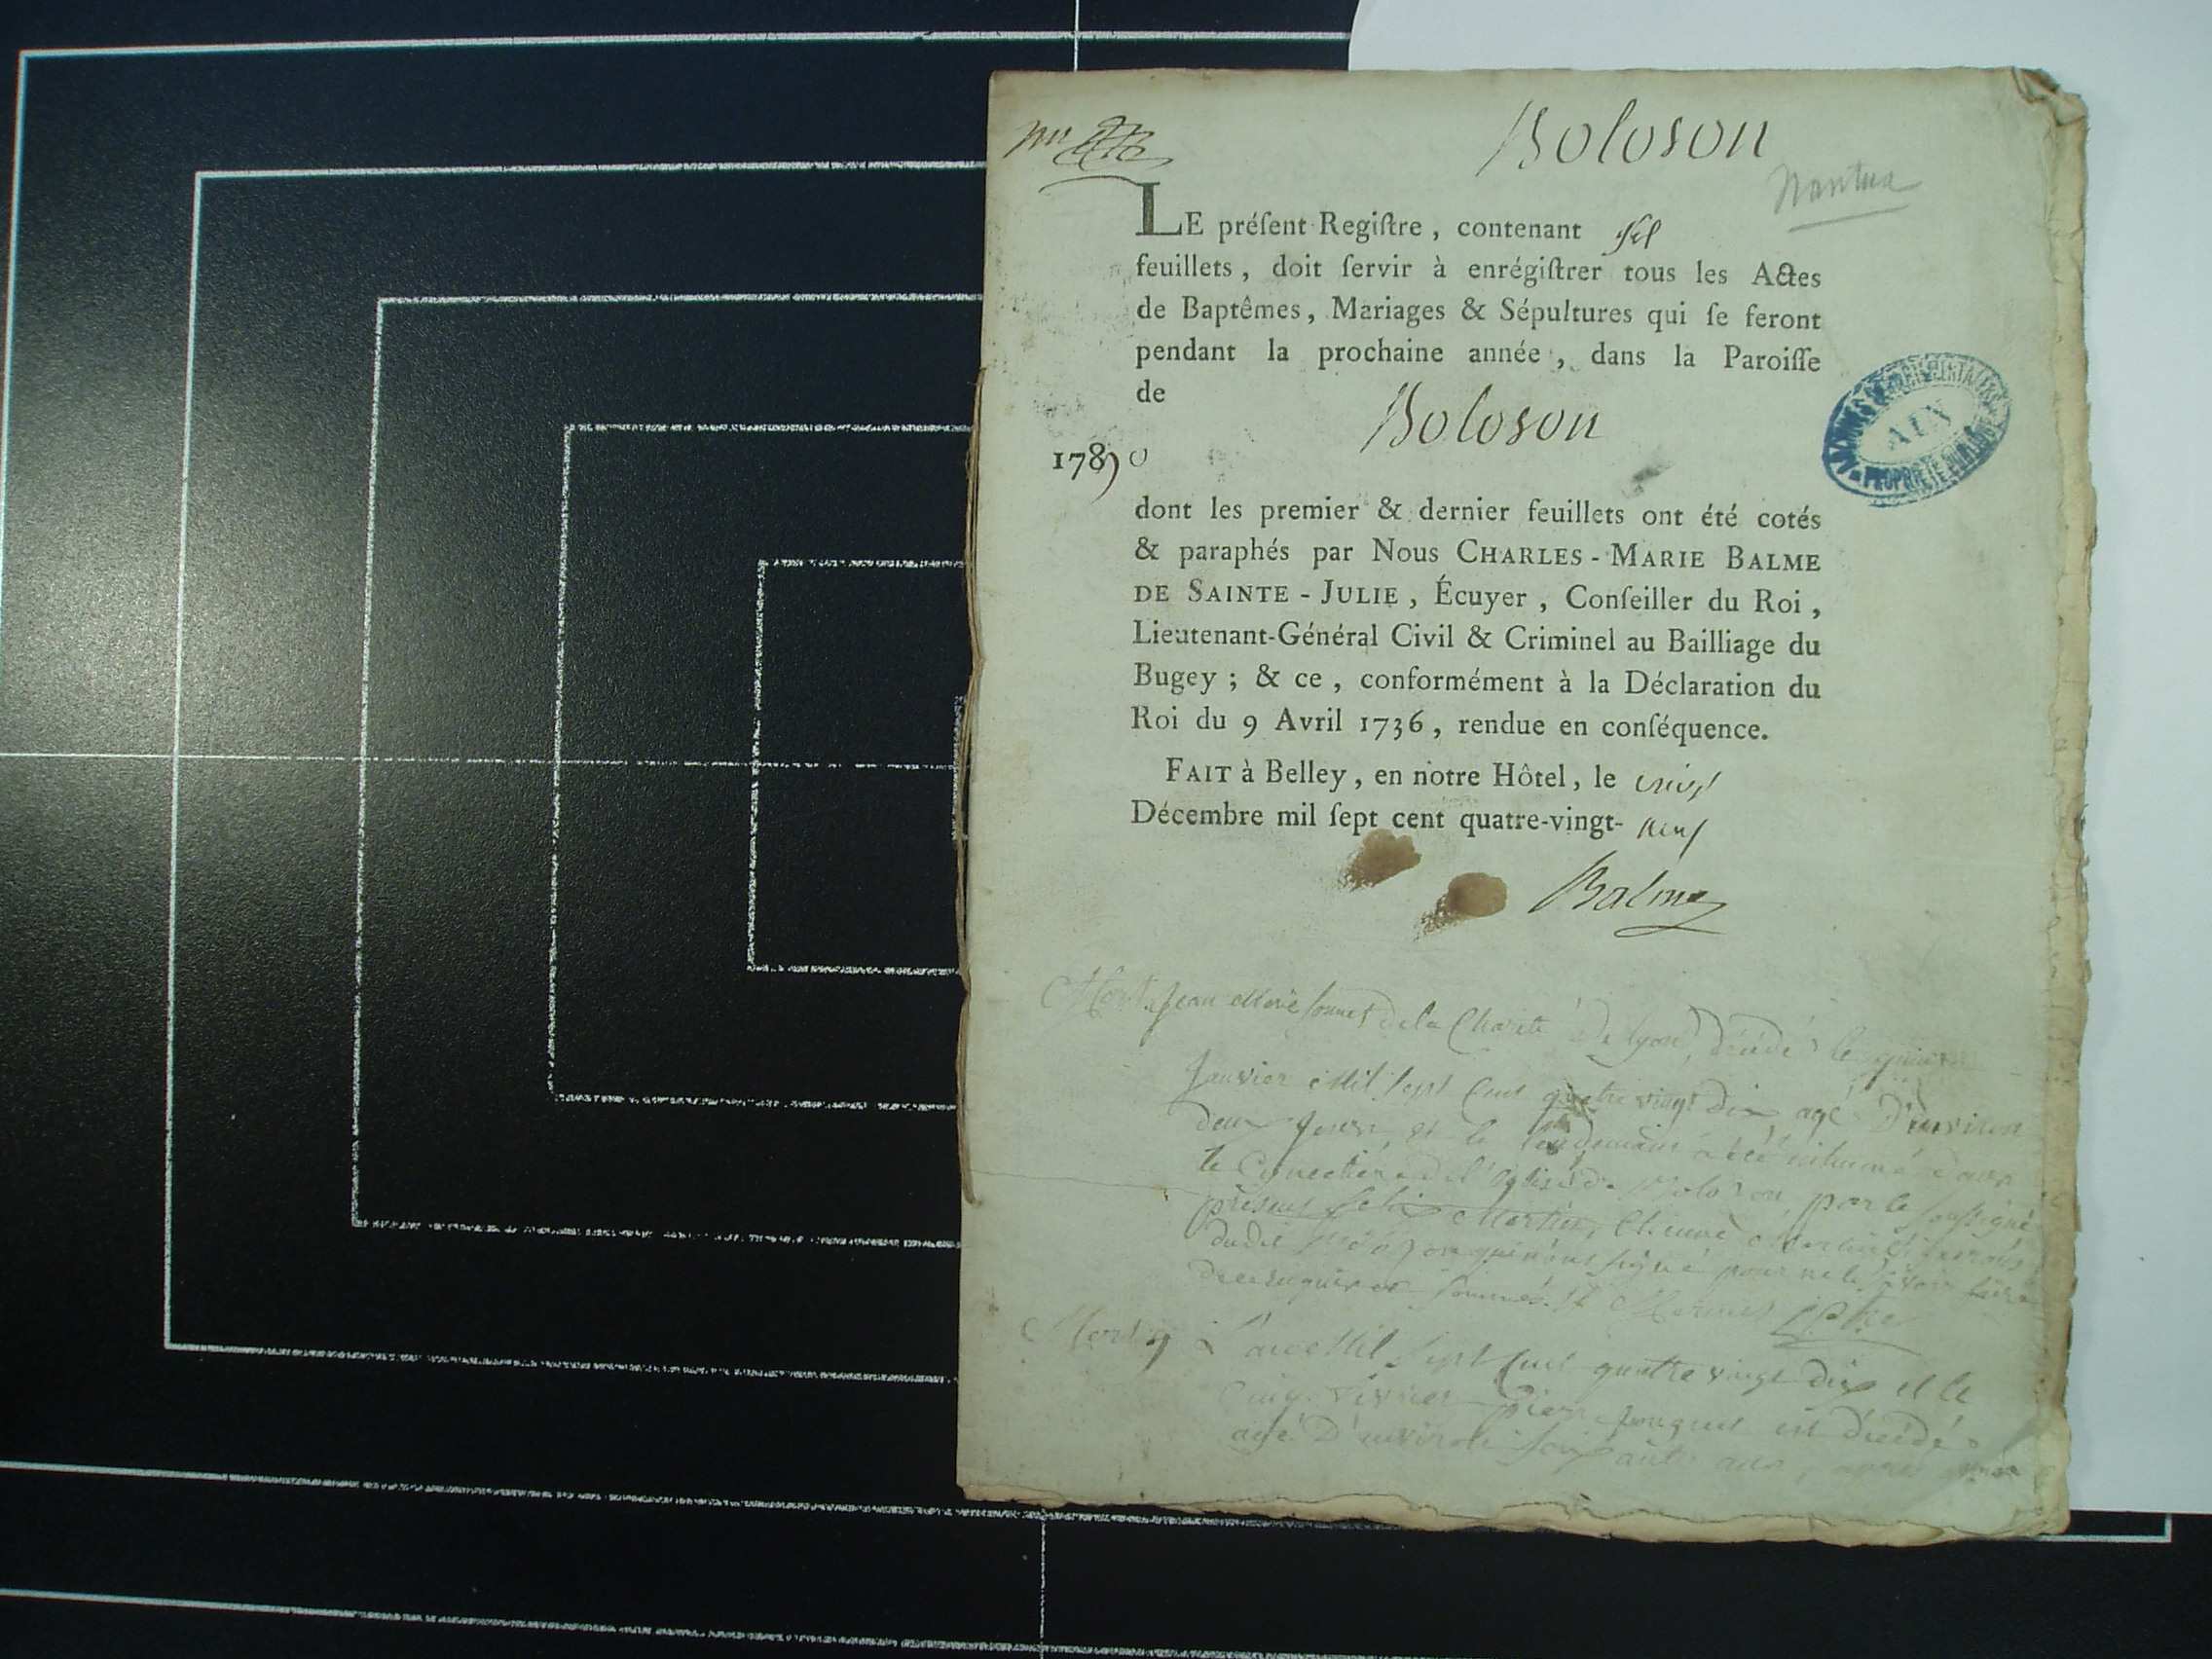 Boloson
Nantua
LE préſent Regiſtre, contenant
feuillets, doit ſervir à enrégiſtrer tous les Actes
de Baptêmes, Mariages & Sépultures qui ſe feront
pendant la prochaine année, dans la Paroiſſe
de Boloson
1789 0
dont les premier & dernier feuillets ont été cotés
& paraphés par Nous CHARLES-MARIE BALME
DE SAINTE-JULIE, Écuyer, Conſeiller du Roi,
Lieutenant-Général Civil & Criminel au Bailliage du
Bugey; & ce, conformément à la Déclaration du
Roi du 9 Avril 1736, rendue en conſéquence.
FAIT à Belley, en notre Hôtel, le vingt
Décembre mil ſept cent quatre-vingt- neuf
Balme
AIN
Mort. Jean Marie de la Charité de Lyon, décédé le
Janvier Mil Sept Cent quatre vingt dix agé D'environ
deux jours, et le lendemain a été inhumé dans
le de l'église de Boloson, par le soussigné
présens Felix Martin, Etienne
dudit qui n'ont signé pour ne le savoir faire
de ce enquis et sommés.
Mort L'an Mil Sept Cent quatre vingt dix et le
Cinq Février Pierre est décédé
agé D'environ soixante ans, après